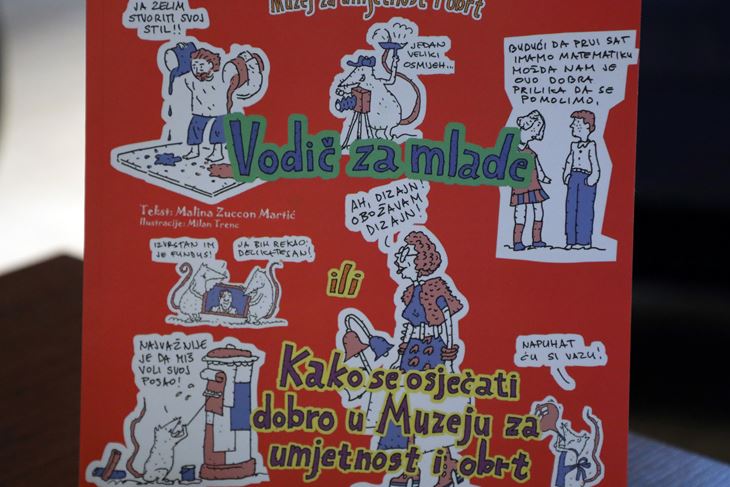 Muzej za umjetnost i obrt
JA ŽELIM
STVORITI SVOJ
STIL!!
JEDAN
VELIKI
OSMIJEH...
BUDUĆI DA PRVI SAT
IMAMO MATEMATIKU
MOŽDA NAM JE
OVO DOBRA
PRILIKA DA SE
POMOLIMO.
Vodič za mlade
Tekst: Malina Zuccon Martić
Ilustracije: Milan Trenc
AH, DIZAJN!
OBOŽAVAM
DIZAJN!
IZVRSTAN IM
JE FUNDUS!
JA BIH REKAO,
DELIKATESAN!
ili
NAJVAŽNIJE
JE DA MIŠ
VOLI SVOJ
POSAO!
NAPUHAT
ĆU SI VAZU!
Kako se osjećati
dobro u Muzeju za
umjetnost i obrt